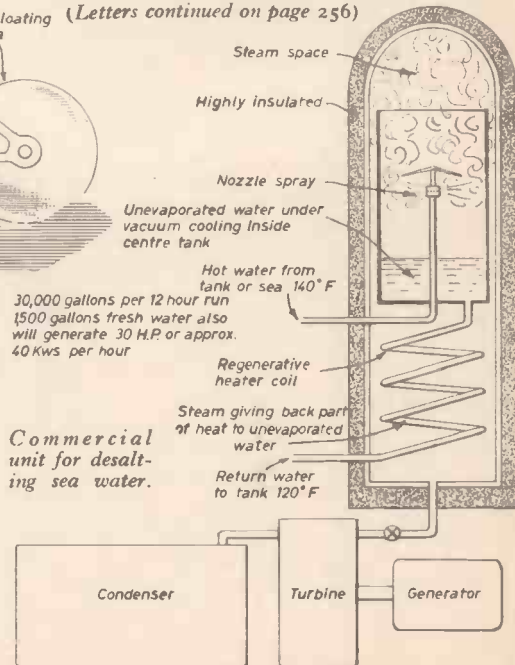 (Letters continued on page 256)
loating
Steam space
Highly insulated
Nozzle spray
Unevaporated water under
vacuum cooling inside
centre tank
Hot water from
tank or sea 140°F
30,000 gallons per 12 hour run
1,500 gallons fresh water also
will generate 30 H.P. or approx.
40 Kws per hour
Regenerative
heater coil
Steam giving back part
of heat to unevaporated
water
Commercial
unit for desalt-
ing sea water.
Return water
to tank 120°F
Condenser
Turbine
Generator